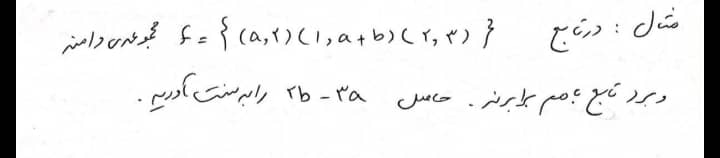 مثال : در تابع f = { (a,۲) (۱, a+b) (۲,۳) } مجموعه‌ی دامنه
و برد تابع باهم برابرند . حاصل ۲b - ۳a را به دست آورید .